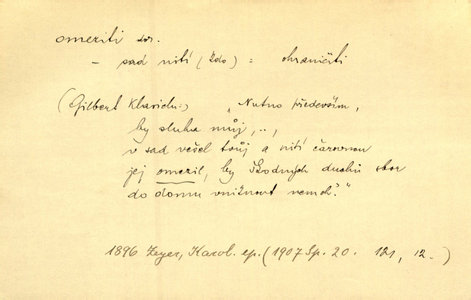 omeziti dok.
– sad nití (kdo) = ohraničiti
(Gilbert Klarichu:) „Nutno především,
by sluha můj ,..,
v sad vešel tvůj a nití čarovnou
jej omezil, by škodných duchů sbor
do domu vniknout nemoh'."
1896 Zeyer, Karol. ep. (1907 Sp. 20. 121, 12.)